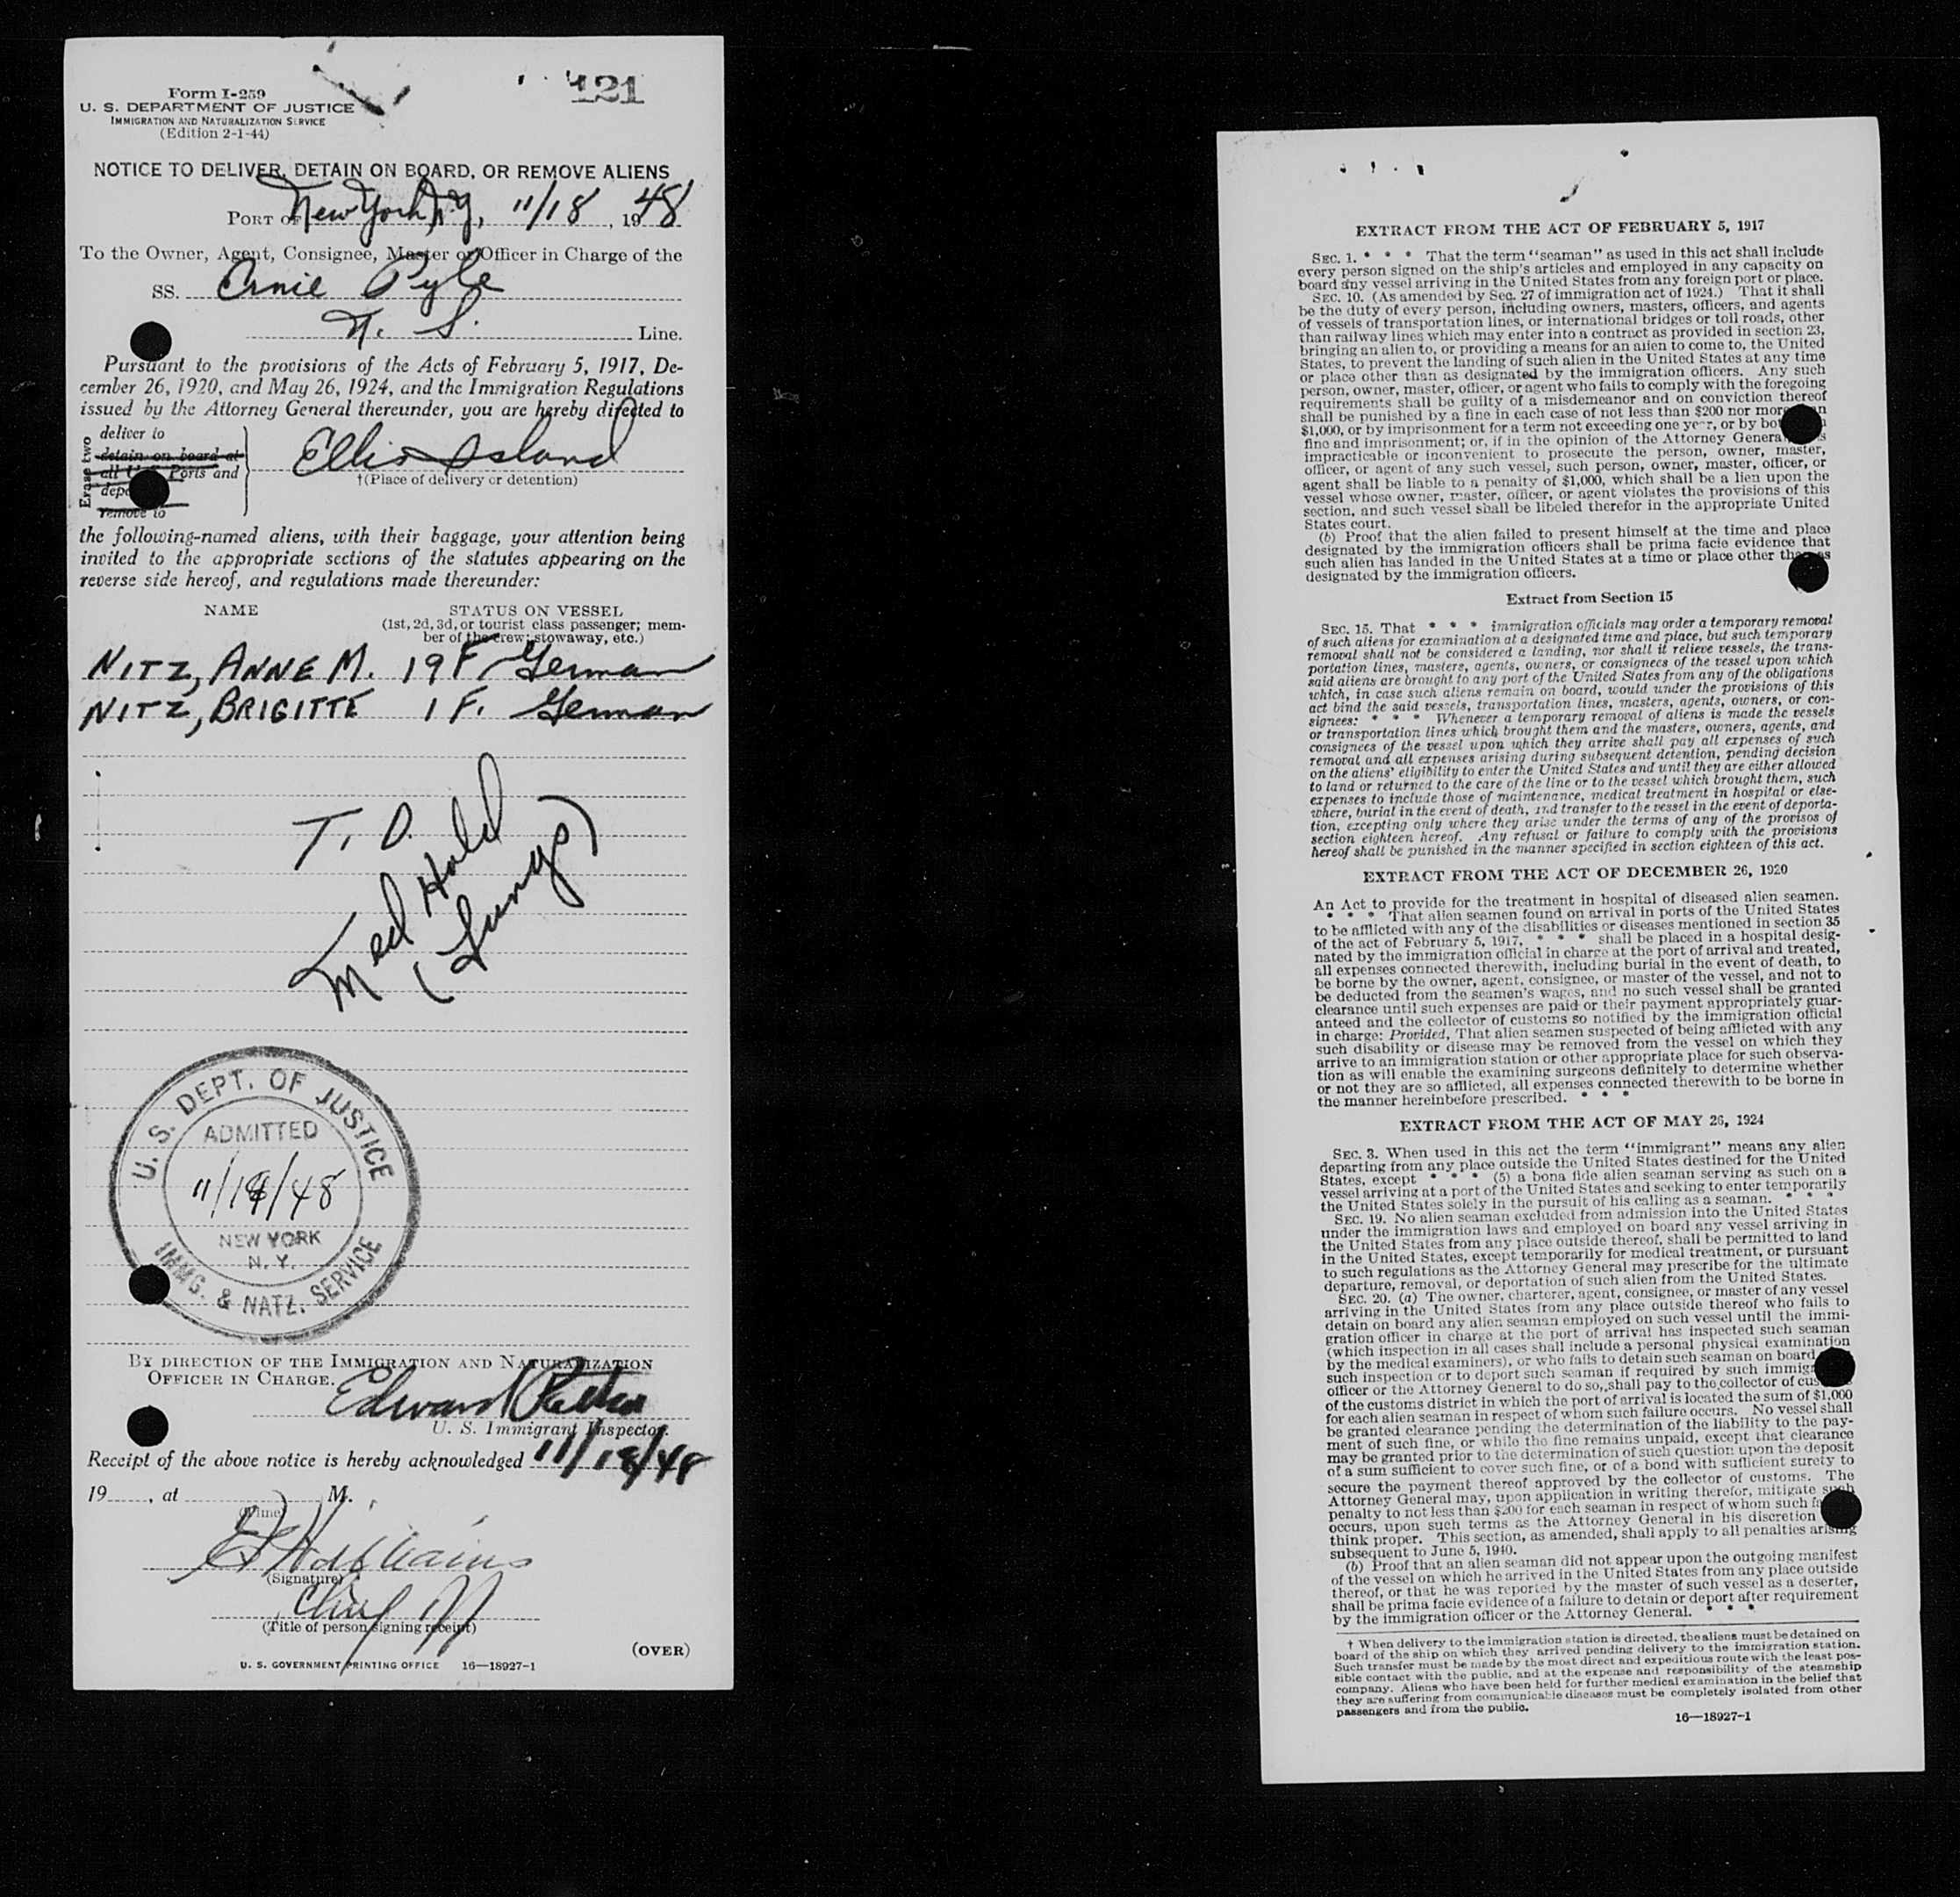 Form I-259
121
U. S. DEPARTMENT OF JUSTICE
IMMIGRATION AND NATURALIZATION SERVICE
(Edition 2-1-44)
NOTICE TO DELIVER, DETAIN ON BOARD, OR REMOVE ALIENS
PORT OF New York, N.Y., 11/18, 1948
To the Owner, Agent, Consignee, Master or Officer in Charge of the
SS. Ernie Pyle
Line.
Pursuant to the provisions of the Acts of February 5, 1917, De-
cember 26, 1920, and May 26, 1924, and the Immigration Regulations
issued by the Attorney General thereunder, you are hereby directed to
Erase two
deliver to
detain on board at
all Ports and
remove to
Ellis Island
†(Place of delivery or detention)
the following-named aliens, with their baggage, your attention being
invited to the appropriate sections of the statutes appearing on the
reverse side hereof, and regulations made thereunder:
NAME STATUS ON VESSEL
(1st, 2d, 3d, or tourist class passenger; mem-
ber of the crew; stowaway, etc.)
NITZ, ANNE M. 19 F. German
NITZ, BRIGITTE 1 F. German
T. D.
Med Hold
(Lungs)
U. S. DEPT. OF JUSTICE
ADMITTED
11/18/48
NEW YORK
N. Y.
IMMG. & NATZ. SERVICE
BY DIRECTION OF THE IMMIGRATION AND NATURALIZATION
OFFICER IN CHARGE.
Edward
U. S. Immigrant Inspector.
Receipt of the above notice is hereby acknowledged 11/18/48
19 , at M.
(Time)
Williams
(Signature)
Chief
(Title of person signing receipt)
(OVER)
U. S. GOVERNMENT PRINTING OFFICE 16—18927-1
EXTRACT FROM THE ACT OF FEBRUARY 5, 1917
SEC. 1. * * * That the term "seaman" as used in this act shall include
every person signed on the ship's articles and employed in any capacity on
board any vessel arriving in the United States from any foreign port or place.
SEC. 10. (As amended by Sec. 27 of immigration act of 1924.) That it shall
be the duty of every person, including owners, masters, officers, and agents
of vessels of transportation lines, or international bridges or toll roads, other
than railway lines which may enter into a contract as provided in section 23,
bringing an alien to, or providing a means for an alien to come to, the United
States, to prevent the landing of such alien in the United States at any time
or place other than as designated by the immigration officers. Any such
person, owner, master, officer, or agent who fails to comply with the foregoing
requirements shall be guilty of a misdemeanor and on conviction thereof
shall be punished by a fine in each case of not less than $200 nor more than
$1,000, or by imprisonment for a term not exceeding one year, or by both
fine and imprisonment; or, if in the opinion of the Attorney General is
impracticable or inconvenient to prosecute the person, owner, master,
officer, or agent of any such vessel, such person, owner, master, officer, or
agent shall be liable to a penalty of $1,000, which shall be a lien upon the
vessel whose owner, master, officer, or agent violates the provisions of this
section, and such vessel shall be libeled therefor in the appropriate United
States court.
(b) Proof that the alien failed to present himself at the time and place
designated by the immigration officers shall be prima facie evidence that
such alien has landed in the United States at a time or place other than as
designated by the immigration officers.
Extract from Section 15
SEC. 15. That * * * immigration officials may order a temporary removal
of such aliens for examination at a designated time and place, but such temporary
removal shall not be considered a landing, nor shall it relieve vessels, the trans-
portation lines, masters, agents, owners, or consignees of the vessel upon which
said aliens are brought to any port of the United States from any of the obligations
which, in case such aliens remain on board, would under the provisions of this
act bind the said vessels, transportation lines, masters, agents, owners, or con-
signees: * * * Whenever a temporary removal of aliens is made the vessels
or transportation lines which brought them and the masters, owners, agents, and
consignees of the vessel upon which they arrive shall pay all expenses of such
removal and all expenses arising during subsequent detention, pending decision
on the aliens' eligibility to enter the United States and until they are either allowed
to land or returned to the care of the line or to the vessel which brought them, such
expenses to include those of maintenance, medical treatment in hospital or else-
where, burial in the event of death, and transfer to the vessel in the event of deporta-
tion, excepting only where they arise under the terms of any of the provisos of
section eighteen hereof. Any refusal or failure to comply with the provisions
hereof shall be punished in the manner specified in section eighteen of this act.
EXTRACT FROM THE ACT OF DECEMBER 26, 1920
An Act to provide for the treatment in hospital of diseased alien seamen.
* * * That alien seamen found on arrival in ports of the United States
to be afflicted with any of the disabilities or diseases mentioned in section 35
of the act of February 5, 1917, * * * shall be placed in a hospital desig-
nated by the immigration official in charge at the port of arrival and treated,
all expenses connected therewith, including burial in the event of death, to
be borne by the owner, agent, consignee, or master of the vessel, and not to
be deducted from the seamen's wages, and no such vessel shall be granted
clearance until such expenses are paid or their payment appropriately guar-
anteed and the collector of customs so notified by the immigration official
in charge: Provided, That alien seamen suspected of being afflicted with any
such disability or disease may be removed from the vessel on which they
arrive to an immigration station or other appropriate place for such observa-
tion as will enable the examining surgeons definitely to determine whether
or not they are so afflicted, all expenses connected therewith to be borne in
the manner hereinbefore prescribed. * * *
EXTRACT FROM THE ACT OF MAY 26, 1924
SEC. 3. When used in this act the term "immigrant" means any alien
departing from any place outside the United States destined for the United
States, except * * * (5) a bona fide alien seaman serving as such on a
vessel arriving at a port of the United States and seeking to enter temporarily
the United States solely in the pursuit of his calling as a seaman. * * *
SEC. 19. No alien seaman excluded from admission into the United States
under the immigration laws and employed on board any vessel arriving in
the United States from any place outside thereof, shall be permitted to land
in the United States, except temporarily for medical treatment, or pursuant
to such regulations as the Attorney General may prescribe for the ultimate
departure, removal, or deportation of such alien from the United States.
SEC. 20. (a) The owner, charterer, agent, consignee, or master of any vessel
arriving in the United States from any place outside thereof who fails to
detain on board any alien seaman employed on such vessel until the immi-
gration officer in charge at the port of arrival has inspected such seaman
(which inspection in all cases shall include a personal physical examination
by the medical examiners), or who fails to detain such seaman on board
such inspection or to deport such seaman if required by such immigration
officer or the Attorney General to do so, shall pay to the collector of customs
of the customs district in which the port of arrival is located the sum of $1,000
for each alien seaman in respect of whom such failure occurs. No vessel shall
be granted clearance pending the determination of the liability to the pay-
ment of such fine, or while the fine remains unpaid, except that clearance
may be granted prior to the determination of such question upon the deposit
of a sum sufficient to cover such fine, or of a bond with sufficient surety to
secure the payment thereof approved by the collector of customs. The
Attorney General may, upon application in writing therefor, mitigate such
penalty to not less than $200 for each seaman in respect of whom such failure
occurs, upon such terms as the Attorney General in his discretion
think proper. This section, as amended, shall apply to all penalties arising
subsequent to June 5, 1940.
(b) Proof that an alien seaman did not appear upon the outgoing manifest
of the vessel on which he arrived in the United States from any place outside
thereof, or that he was reported by the master of such vessel as a deserter,
shall be prima facie evidence of a failure to detain or deport after requirement
by the immigration officer or the Attorney General. * * *
† When delivery to the immigration station is directed, the aliens must be detained on
board of the ship on which they arrived pending delivery to the immigration station.
Such transfer must be made by the most direct and expeditious route with the least pos-
sible contact with the public, and at the expense and responsibility of the steamship
company. Aliens who have been held for further medical examination in the belief that
they are suffering from communicable diseases must be completely isolated from other
passengers and from the public.
16—18927-1